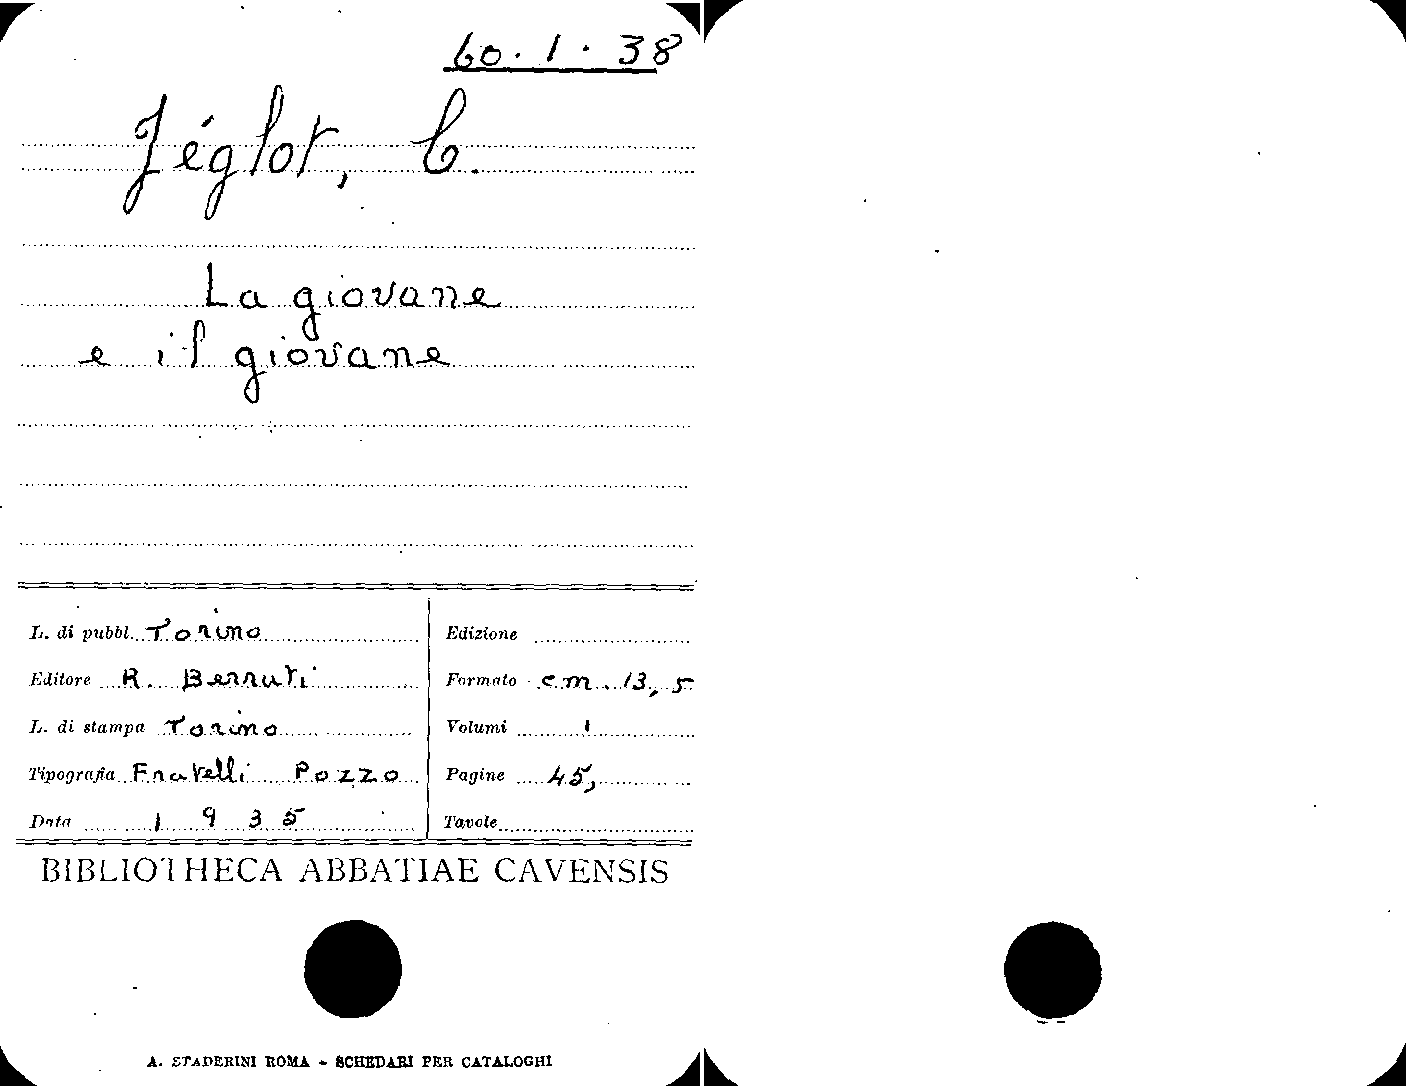 60.1.38
Jéglot, C.
La giovane
e il giovane
L. di pubbl. Torino
Editore R. Berruti
L. di stampa Torino
Tipografia Fratelli Pozzo
Data 1935
Edizione
Formato cm. 13,5
Volumi 1
Pagine 45,
Tavole
BIBLIOTHECA ABBATIAE CAVENSIS
A. STADERINI ROMA - SCHEDARI PER CATALOGHI